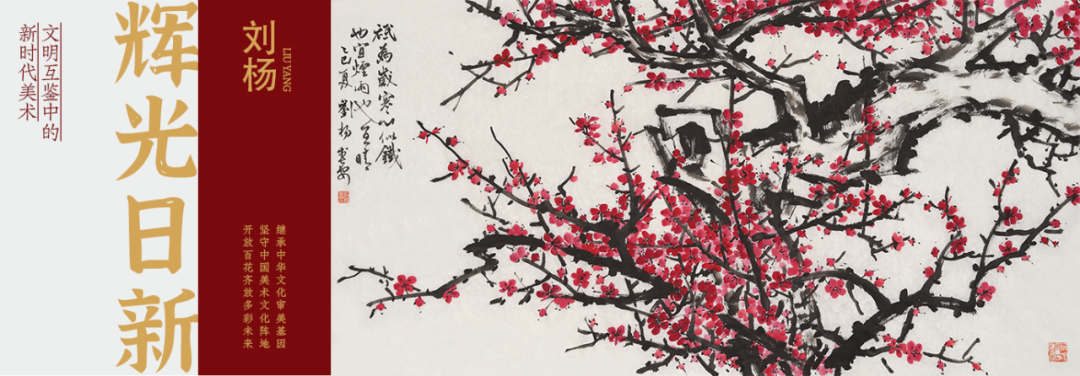 文明互鉴中的
新时代美术
辉光日新
刘杨
LIU YANG
继承中华文化审美基因
坚守中国美术文化阵地
开放百花齐放多彩未来
祇為歲寒心似鐵
也宜煙雨也宜晴
乙巳夏劉楊